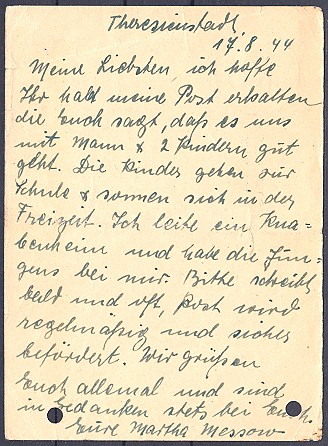 Theresienstadt
17.8.44
Meine Liebsten, ich hoffe
Ihr habt meine Post erhalten
die Euch sagt, daß es uns
mit Mann & 2 Kindern gut
geht. Die Kinder gehen zur
Schule & sonnen sich in der
Freizeit. Ich leite ein Kna=
benheim und habe die Jun=
gens bei mir. Bitte schreibt
bald und oft, Post wird
regelmäßig und sicher
befördert. Wir grüßen
Euch allemal und sind
in Gedanken stets bei Euch.
Eure Martha Messow